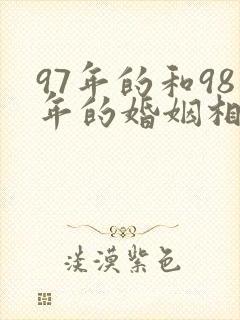 97年的和98
年的婚姻相
淡漠紫色